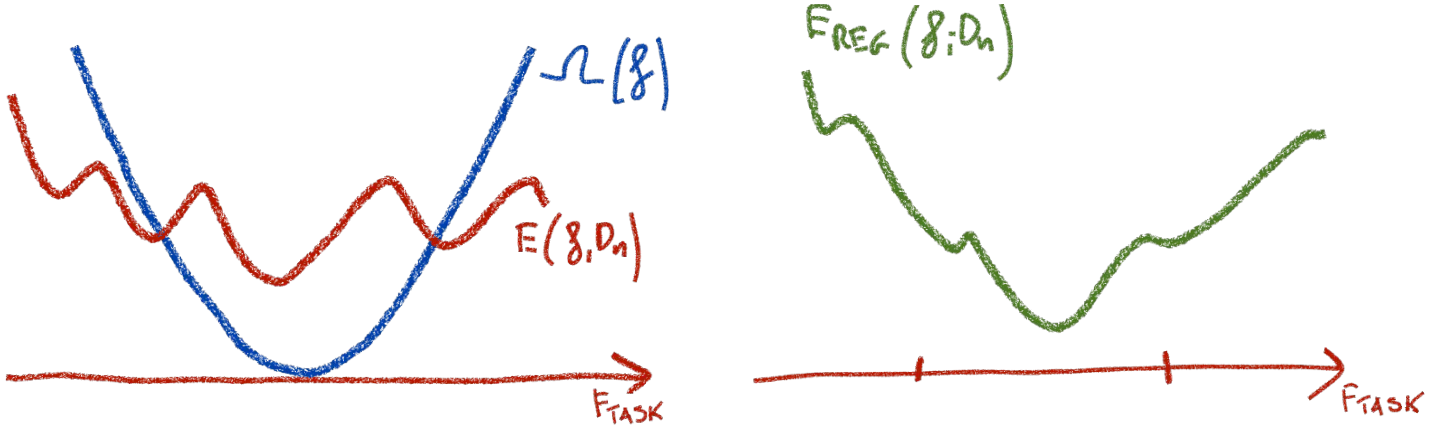 Ω(f)
E(f,Dn)
FTASK
EREG(f,Dn)
FTASK